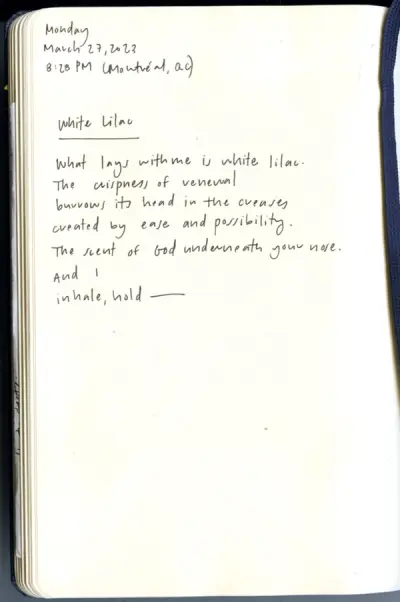 Monday
March 27, 2023
8:28 PM (Montréal, QC)
White Lilac
What lays with me is white lilac.
The crispness of renewal
burrows its head in the creases
created by ease and possibility.
The scent of God underneath your nose.
And I
inhale, hold —